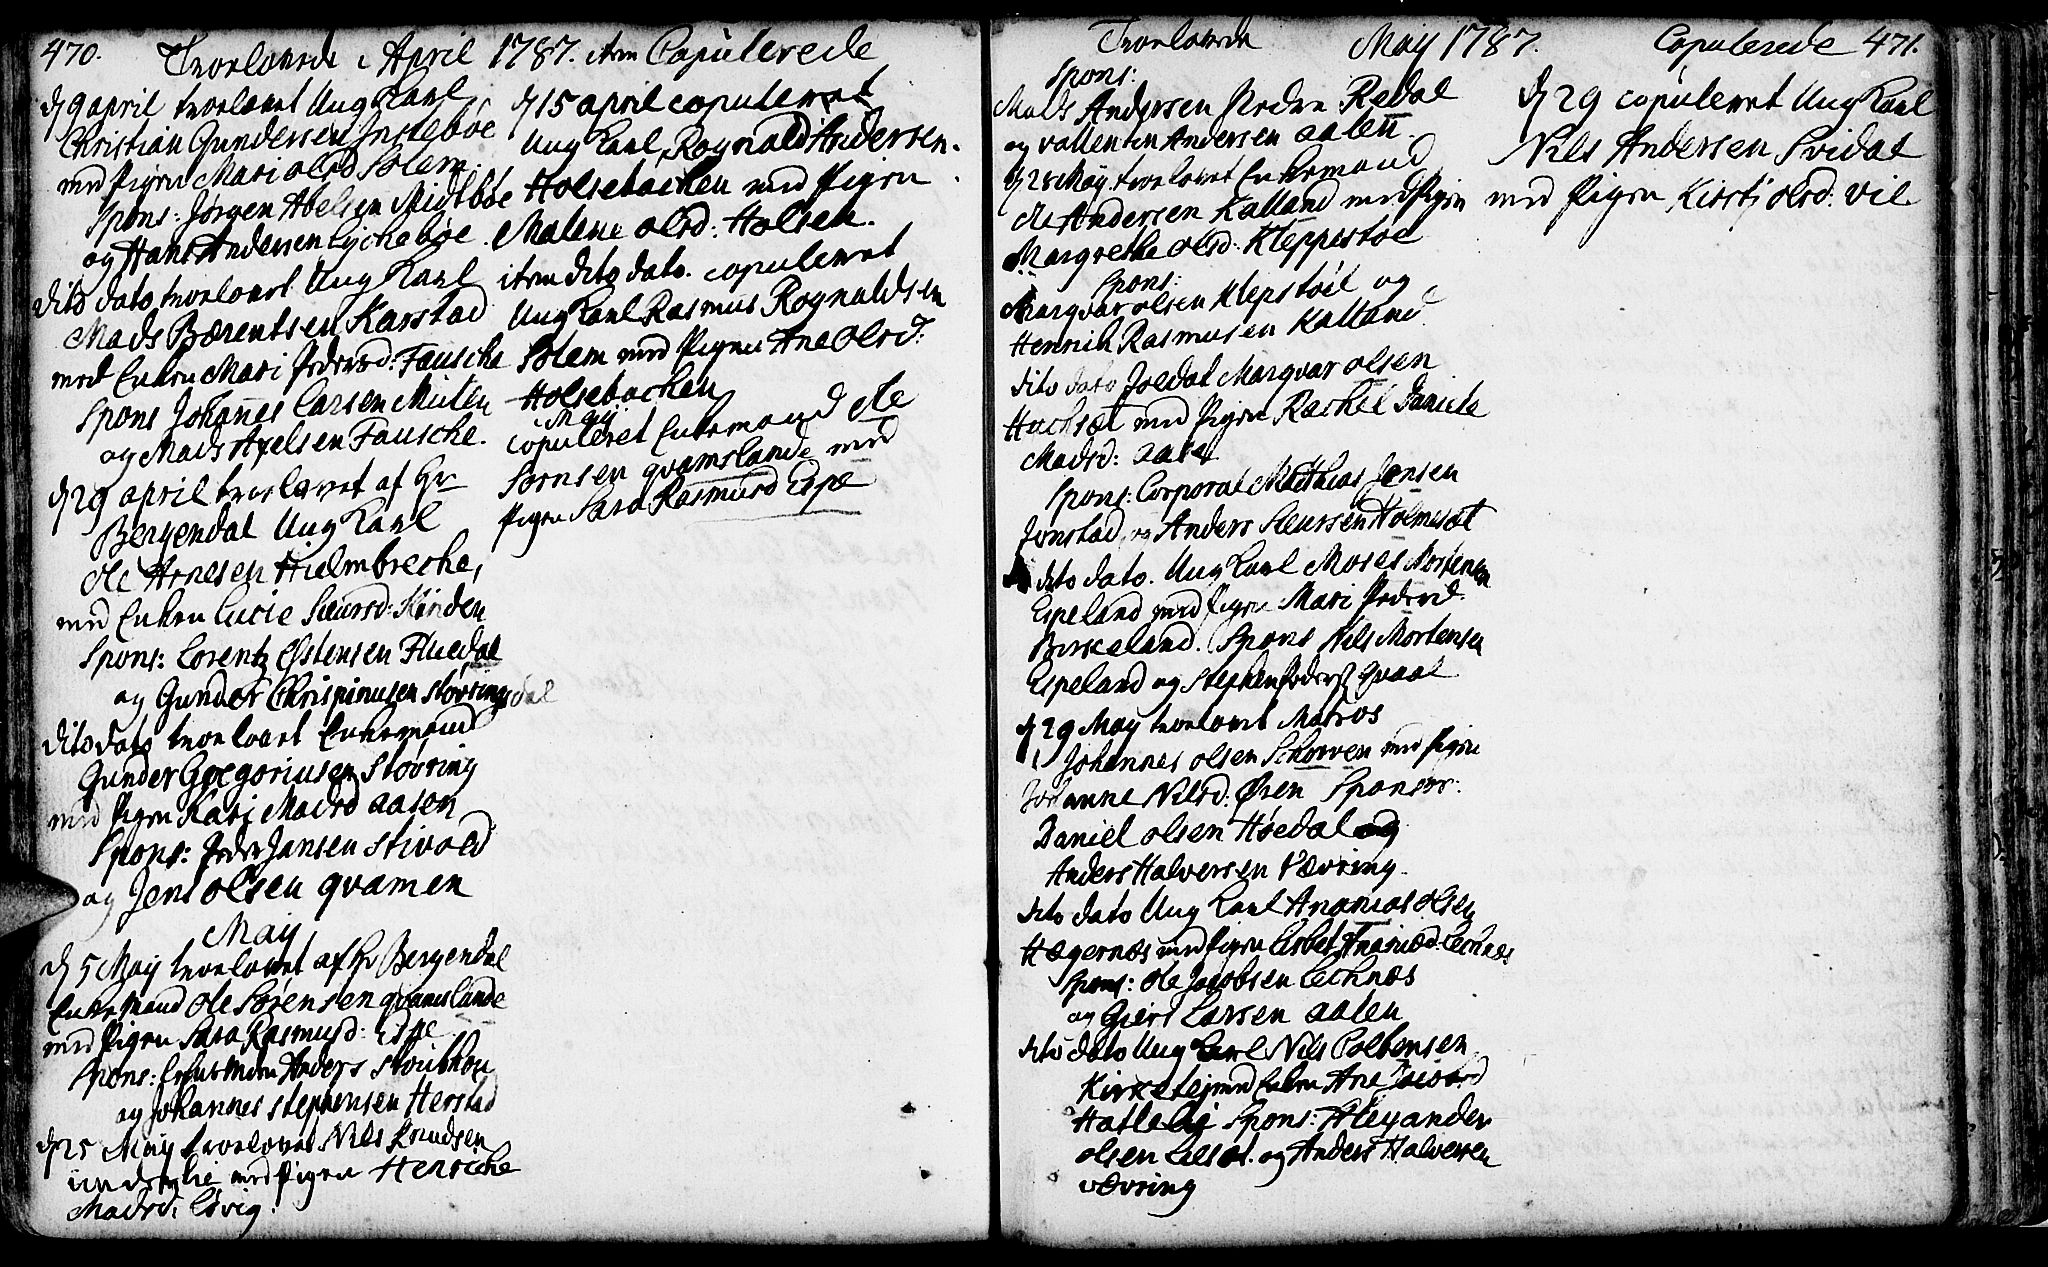 470. Troelovede i April 1787. item Copulerede
d 9 april troelovet Ung Karl
Christian Gundersen Indrebøe
med Pigen Mari olsd Solem.
Spons: Jørgen Abelsen Midtbøe
og Hans Andersen Lychebøe.
dito dato troelovet Ung Karl
Mads Bærentsen Karstad
med Enken Mari Pedersd: Fausche
Spons Johannes Larsen Muten
og Mads Axelsen Fausche.
d 29 april troelovet af Hr
Bergendal Ung Karl
Ole Arnesen Hielmbreche,
med Enken Lucie Siursd: Kinden
Spons: Lorentz Østensen Fluedal
og Gunder Chrispinusen Støvringsdal
dito dato troelovet Enkemand
Gunder Gregoriusen Støvring
med Pigen Kari Madsd aasen
Spons: Peder Jansen Stivold
og Jens olsen qvamen
May
d 5 May troelovet af Hr Bergendal
Enkemand Ole Sørensen qvamslande
med Pigen Sara Rasmusd: Espe
Spons: Anders
og Johannes Stephensen Herstad
d 25 May troelovet Nils Knudsen
med Pigen Henriche
Madsd:
d 15 april copuleret
Ung Karl, Rognald Andersen
Holsebachen med Pigen
Malene olsd: Holsen.
item dito dato. copuleret
Ung Karl Rasmus Rognaldsen
Solem med Pigen Ane Olsd:
Holsebachen
May
copuleret Enkemand Ole
Sørnsen qvamslande med
Pigen Sara Rasmusd Espe
Troelovede May 1787. Copulerede 471.
Spons:
Mads Andersen Nedre Redal
og vallentin Andersen aalen.
d 28 May troelovet Enkemand
Ole Andersen Kalland med Pigen
Margrethe olsd: Kleppestøe
Spons:
Marqvar olsen Klepstøe og
Henrich Rasmusen Kalland
dito dato Soldat Marqvar olsen
Huchset med Pigen Rachel Daniela
Madsd: aasen
Spons: Corporal Matthias Jensen
Jonstad og Anders Siursen Holmeset
dito dato. Ung Karl Moses Mortensen
Espeland med Pigen Mari Pedersd.
Birkeland. Spons Nils Mortensen
Espeland og Stephen Peders: qvaal
d 29 May troelovet Matros
Johannes olsen Schorven med Pigen
Johanne Nilsd: Øren Sponsor:
Daniel olsen Høedal og
Anders Halversen Vævring.
dito dato Ung Karl Ananias olsen
Hægernæs med Pigen Lisbet Lechnæs
Spons: Ole Jacobsen Lechnæs
og Giert Larsen aalen
dito dato Ung Karl Nils Colbensen
Kirketej med Enken Ane
Hatleli Spons: Alexander
olsen og Anders Halversen
vævring
d 29 copuleret Ung Karl
Nils Andersen Svidal
med Pigen Kirstj olsd: vil